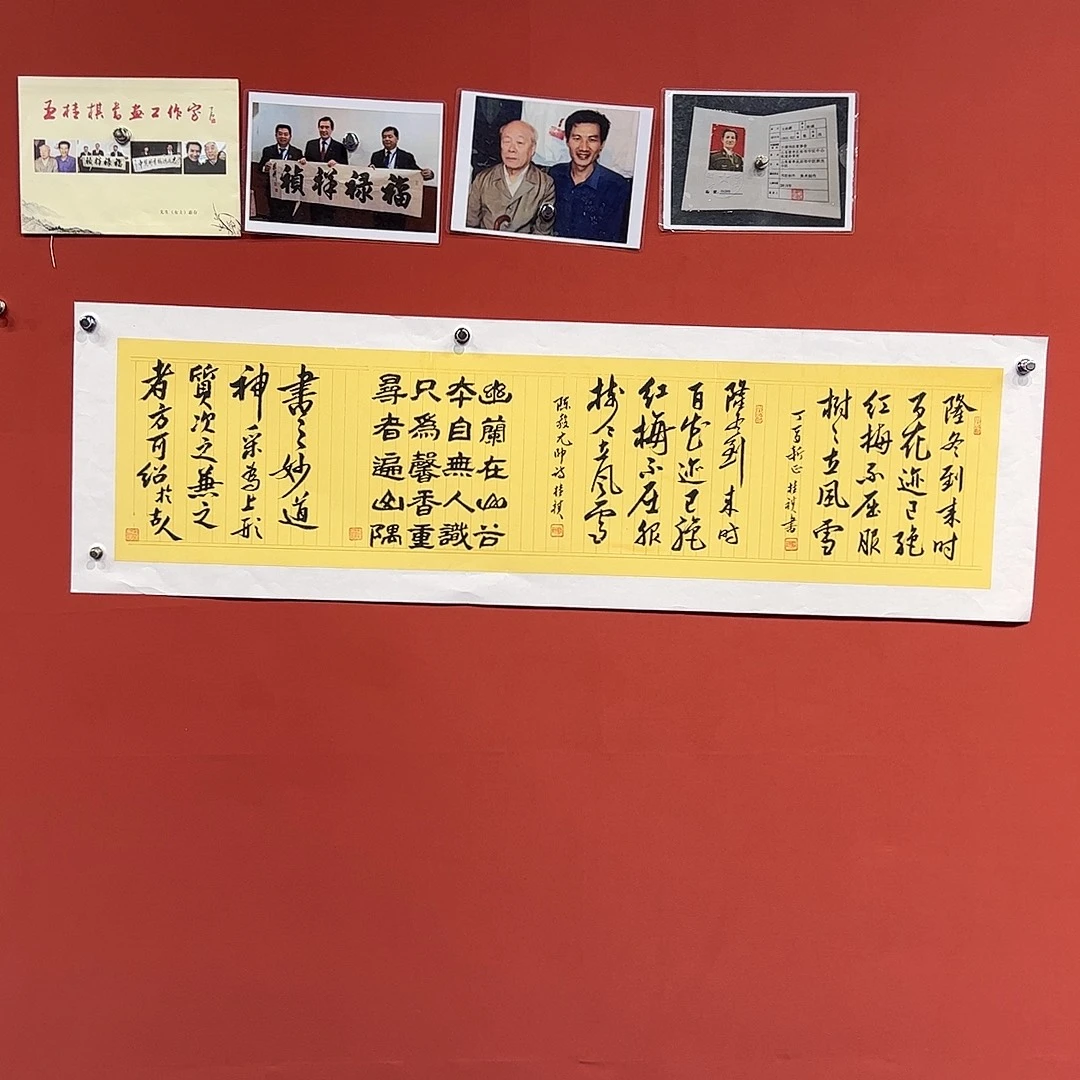 王桂棋书画工作室
福禄祥祯
隆冬到来时
百花迹已绝
红梅不屈服
树々立风雪
丁酉新正 桂棋書
隆冬到来时
百花迹已绝
红梅不屈服
树々立风雪
陈毅元帅诗 桂棋
幽蘭在山谷
夲自無人識
只為馨香重
尋者遍山隅
書之妙道
神采為上形
質次之兼之
者方可绍於古人